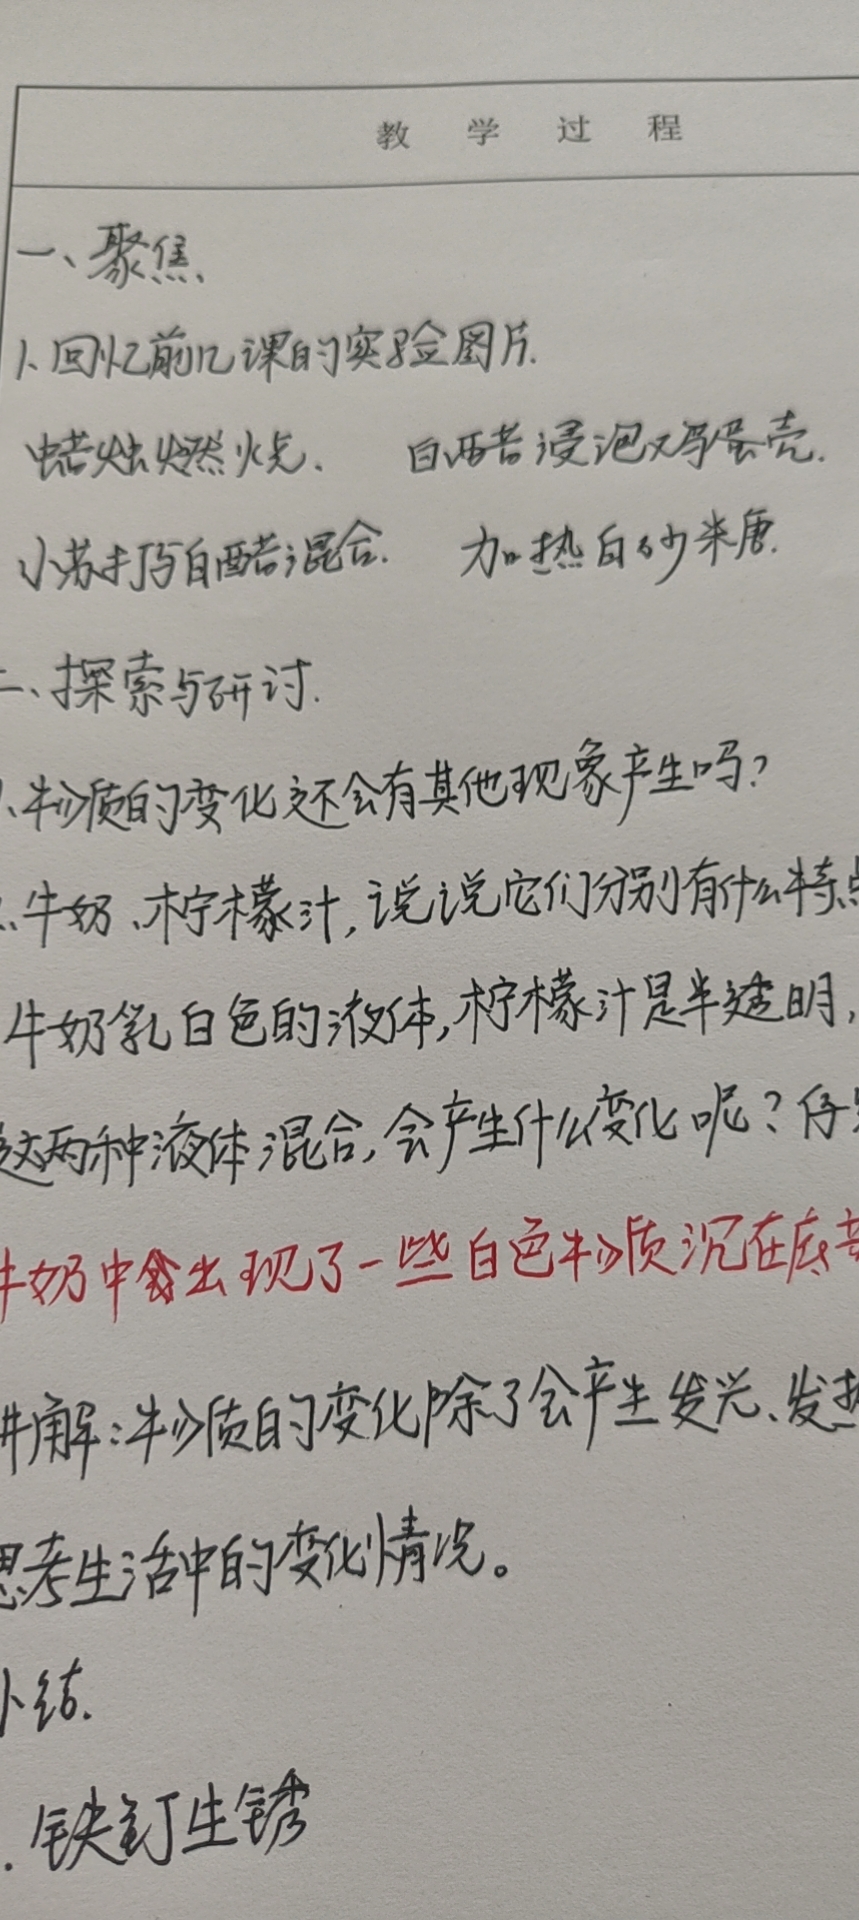 教学过程
一、聚焦
1.回忆前几课的实验图片.
蜡烛燃烧. 白醋浸泡鸡蛋壳.
小苏打与白醋混合. 加热白砂糖.
二、探索与研讨.
1、物质的变化还会有其他现象产生吗?
牛奶、柠檬汁,说说它们分别有什么特点
牛奶乳白色的液体,柠檬汁是半透明,
这两种液体混合,会产生什么变化呢?仔
牛奶中出现了一些白色物质沉在底部
讲解:物质的变化除了会产生发光、发热
思考生活中的变化情况。
小结.
铁钉生锈